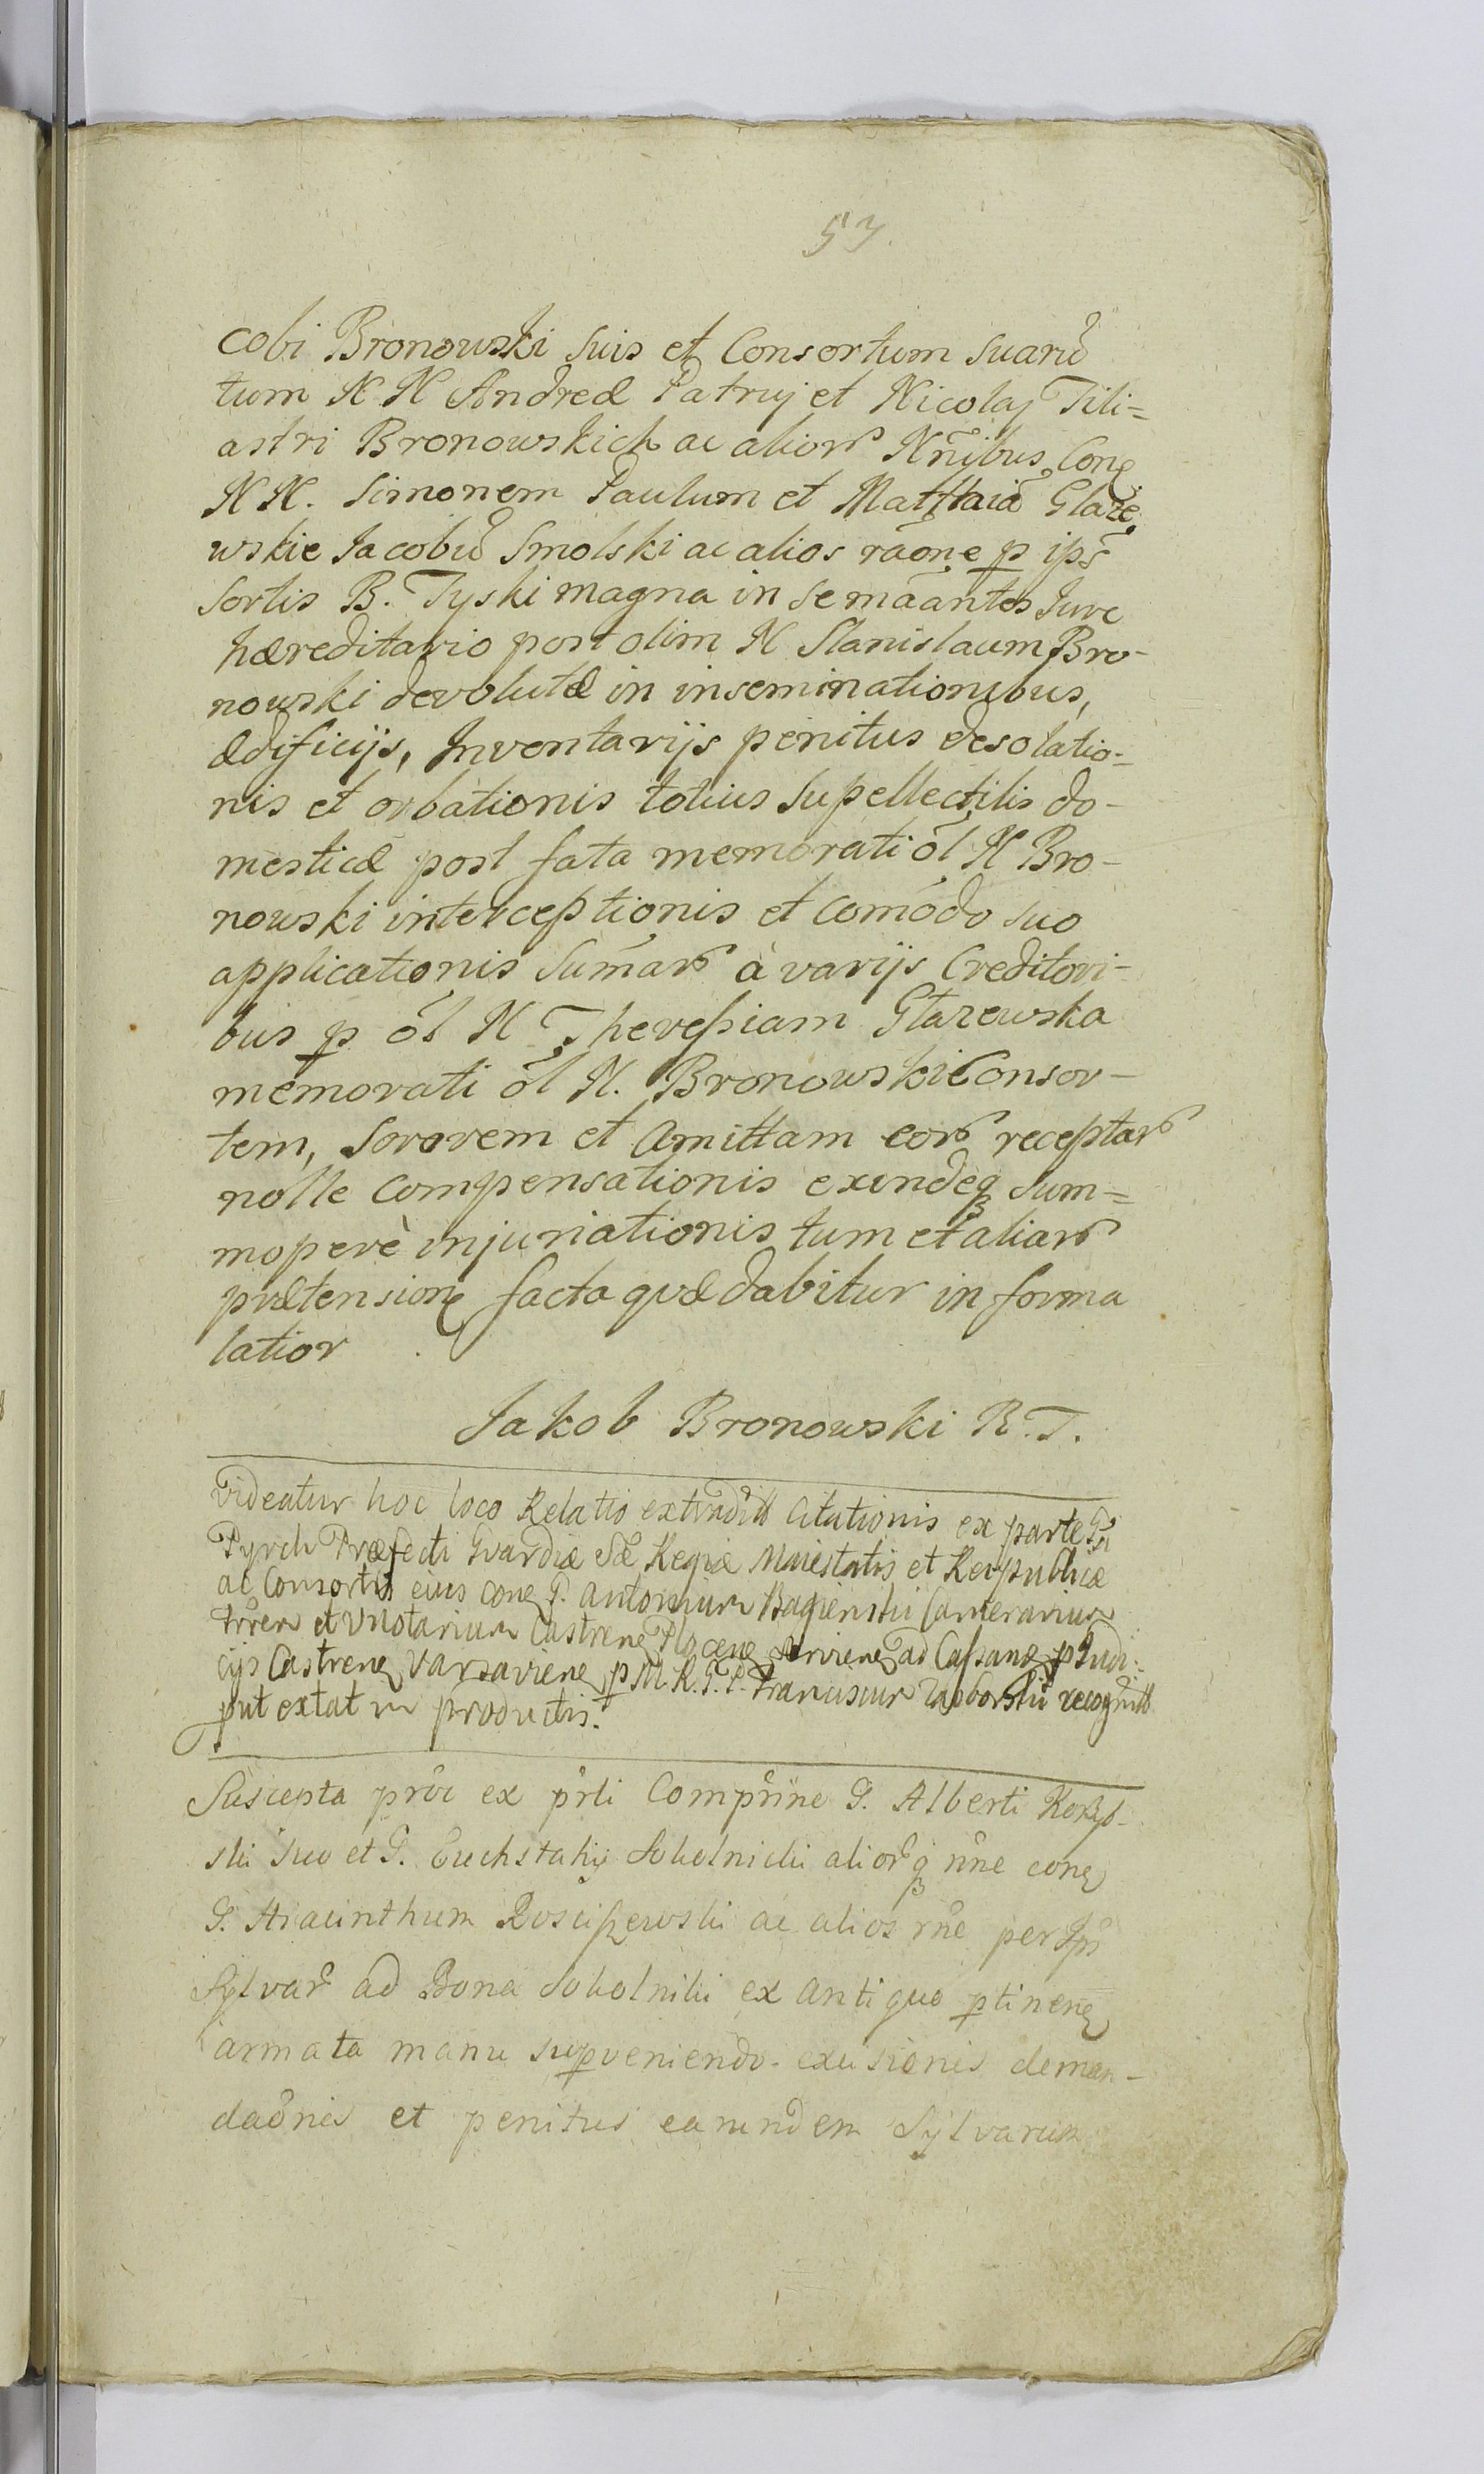 57.
cobi Bronowski suis et Consortum suarū
tum N N Andreæ Patruj et Nicolaj Fili=
astri Bronowskich ac alior̄ Nn̄ibus Conę
N N. Simonem Paulum et Matthaiū Głaze
wskie Jacobū Smolski ac alios raōne p ips̄
sortis B. Tyski magna in se māantes Jure
hæreditario post olim N Stanislaum Bro-
nowski devolutæ in inseminationibus,
ædificijs, Inventarijs penitus desolatio-
nis et orbationis totius supellectilis do-
mesticæ post fata memorati ōl N Bro-
nowski interceptionis et comōdo suo
applicationis sum̄ar̄ à varijs Creditori-
bus p ōl N Theressiam Głazewska
memorati ōl N. Bronowski Consor-
tem, sororem et Amittam eor̄ receptar̄
nolle compensationis exindeq sum=
moperè injuriationis tum et aliar̄
prætensionę facta quæ dabitur in forma
latior
Jakob Bronowski R. T.
Videatur hoc loco Relatio extraditt Citationis ex parte
Pyrch Præfecti Gvardiæ Sæ Regiæ Maiestatis et Reipublicæ
ac Consortis eius conę P. Antonium Bagienski Camerarium
trr̄en et VNotarium Castrenę Plocenę servienę ad Cassandę p Judi-
cijs Castrenę Varsavienę p M. R. T. P. Franciscum Zaborskū recognitt
put extat in productis.
Suscepta prōc ex pr̄ti Compr̄ine G. Alberti
ski suo et G. Euchstahij Sokolnicki alior̄q nn̄e conę
G. Hiacinthum Roscissewski ac alios rn̄e per Ips̄
Sylvar̄ ad Bona Sokolniki ex antiquo ptinenę
armata manu supveniendo excisionis deman-
daōnis et penitus earundem Sylvarum